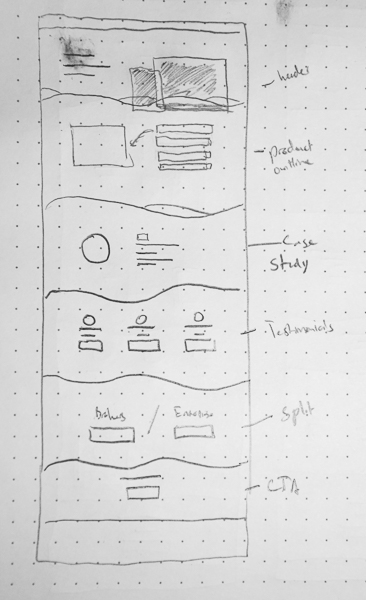 header
product
outline
Case
Study
Testimonials
/ Enterprise
Split
CTA